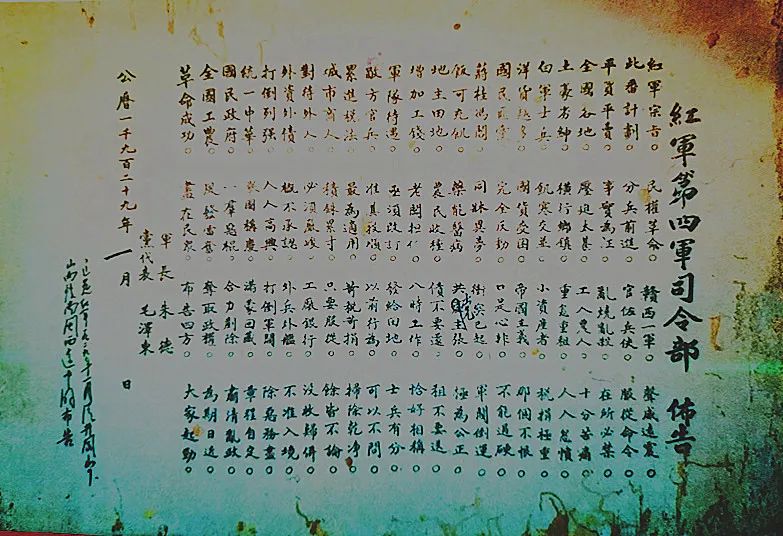 紅軍第四軍司令部 佈告
紅軍宗旨。民權革命。贛西一軍。聲威遠震。
此番計劃。分兵前進。官佐兵伕。服從命令。
平買平賣。事實為証。亂燒亂殺。在所必禁。
全國各地。壓迫太甚。工人農人。十分苦痛。
土豪劣紳。橫行鄉鎮。重息重租。人人怨憤。
白軍士兵。飢寒交並。小資產者。稅捐極重。
洋貨越多。國貨受困。帝國主義。那個不恨。
國民匪黨。完全反動。口是心非。不能過硬。
蔣桂馮閻。同牀異夢。衝突已起。軍閥倒運。
飯可充飢。藥能醫病。共黨主張。極為公正。
地主田地。農民收種。債不要還。租不要送。
增加工錢。老闆担任。八時工作。恰好相稱。
軍隊待遇。亟須改訂。發給田地。士兵有分。
敵方官兵。准其投順。以前行為。可以不問。
累進稅法。最為適用。苛稅苛捐。掃除乾淨。
城市商人。積銖累寸。只要服從。餘皆不論。
對待外人。必須嚴峻。工廠銀行。沒收歸併。
外資外債。概不承認。外兵外艦。不准入境。
打倒列強。人人高興。打倒軍閥。除惡務盡。
統一中華。舉國稱慶。滿蒙回藏。章程自定。
國民政府。一羣惡棍。合力剷除。肅清亂政。
全國工農。風發雷奮。奪取政權。為期日近。
革命成功。盡在民眾。布告四方。大家起勁。
軍長 朱德
黨代表 毛澤東
公曆一千九百二十九年一月 日